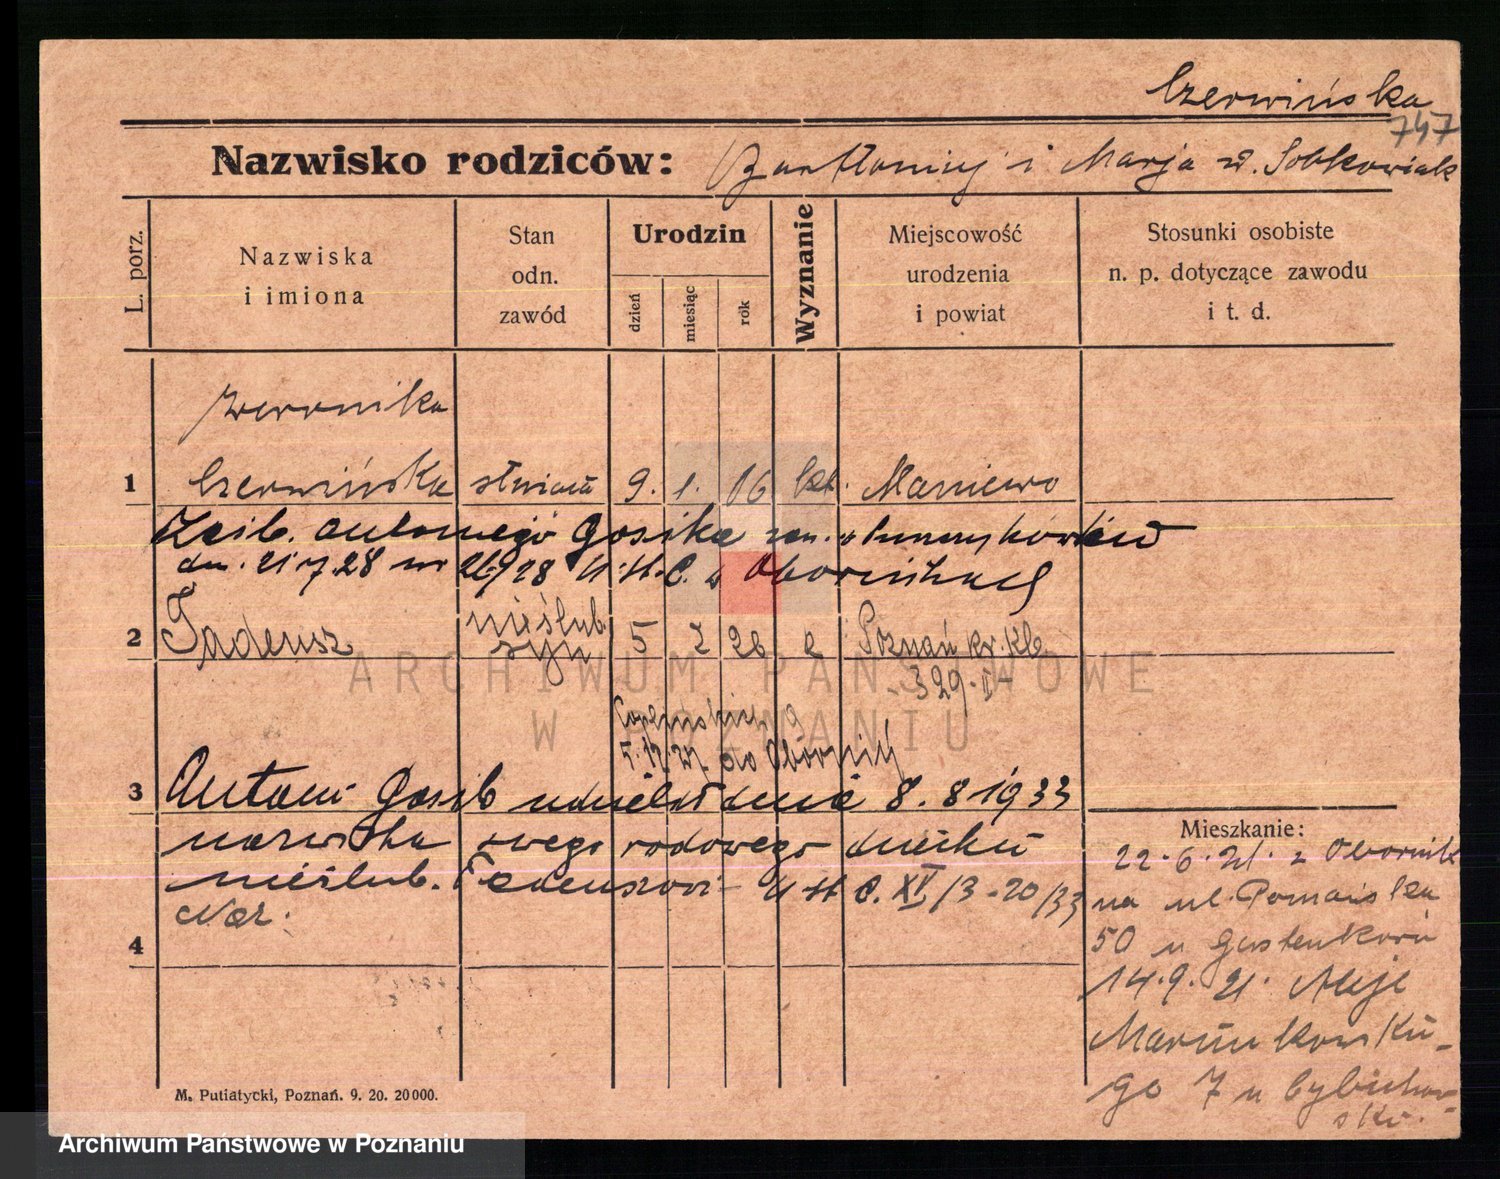 Czerwińska
747
Nazwisko rodziców: Bartłomiej i Marja z d. Sobkowiak
L. porz.
Nazwiska i imiona
Stan odn. zawód
Urodzin
dzień
miesiąc
rok
Wyznanie
Miejscowość urodzenia i powiat
Stosunki osobiste n. p. dotyczące zawodu i t. d.
Weronika
1 Czerwińska służąca 9. 1. 06 kat. Maniewo
Zaśb. Antoniego Gosika zam. w
dn. 21.7.28 nr 26/28 U.St.C. w Obornikach
2 Tadeusz nieślub. syn 5 2 26 k Poznań kr. kb.
329.II
5.12.27. do Obornik
3 Antoni Gosik udzielał dnia 8.8.1933
nazwiska swego rodowego dziecku
nieślub. Tadeuszowi U St C. XV/3-20/33
4
Mieszkanie:
22.6.21. z Obornik
na ul. Poznańska
50 u
14.9.21. Aleje
Marcinkowskie-
go 7 u Cybichow-
ski.
M. Putiatycki, Poznań. 9. 20. 20000.
ARCHIWUM PAŃSTWOWE
W POZNANIU
Archiwum Państwowe w Poznaniu